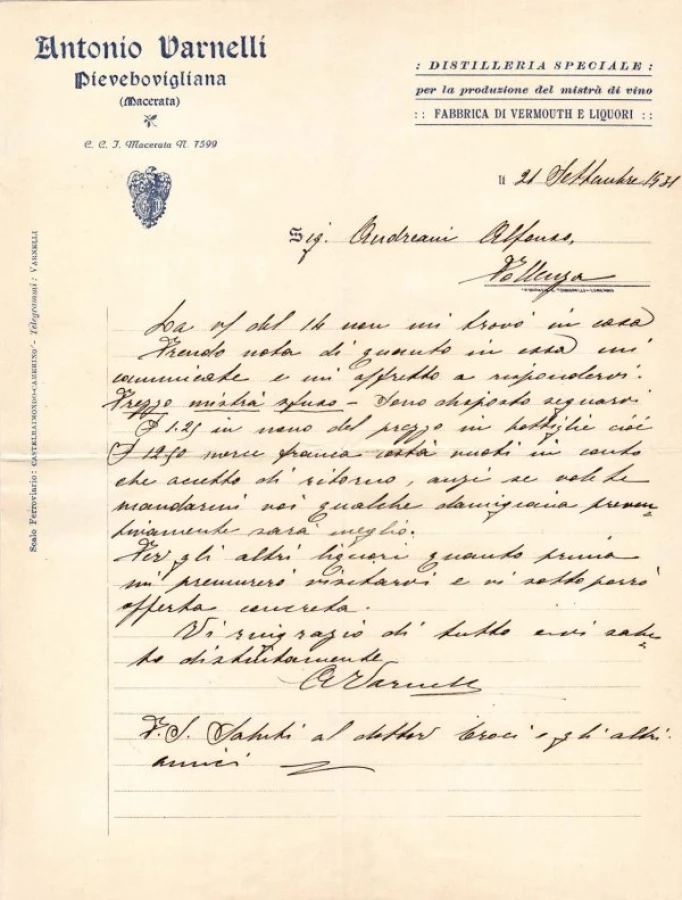 Antonio Varnelli
Pievebovigliana
(Macerata)
C. C. I. Macerata N. 7599
: DISTILLERIA SPECIALE :
per la produzione del mistrà di vino
:: FABBRICA DI VERMOUTH E LIQUORI ::
li 21 Settembre 1931
Sig. Andreani Alfonso,
Pollenza
Scalo Ferroviario: CASTELRAIMONDO-CAMERINO - Telegrammi: VARNELLI
La v/ del 14 non mi trovò in casa
Prendo nota di quanto in essa mi
comunicate e mi affretto a rispondervi.
Prezzo mistrà sfuso - Sono disposto segnarvi
£ 1.25 in meno del prezzo in bottiglie cioè
£ 12.50 merce franca costà vuoti in conto
che accetto di ritorno, anzi se volete
mandarmi voi qualche damigiana preven-
tivamente sarà meglio.
Per gli altri liquori quanto prima
mi premurerò visitarvi e vi sottoporrò
offerta concreta.
Vi ringrazio di tutto e vi salu-
to distintamente
A Varnelli
P. S. Saluti al dottor Croci e gli altri
amici